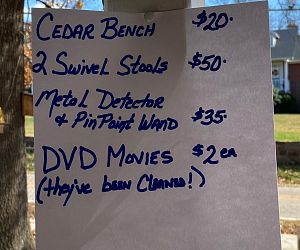 CEDAR BENCH $20.
2 SWIVEL STOOLS $50.
METAL DETECTOR
& PINPOINT WAND $35.
DVD MOVIES $2 ea
(they've been CLEANED!)